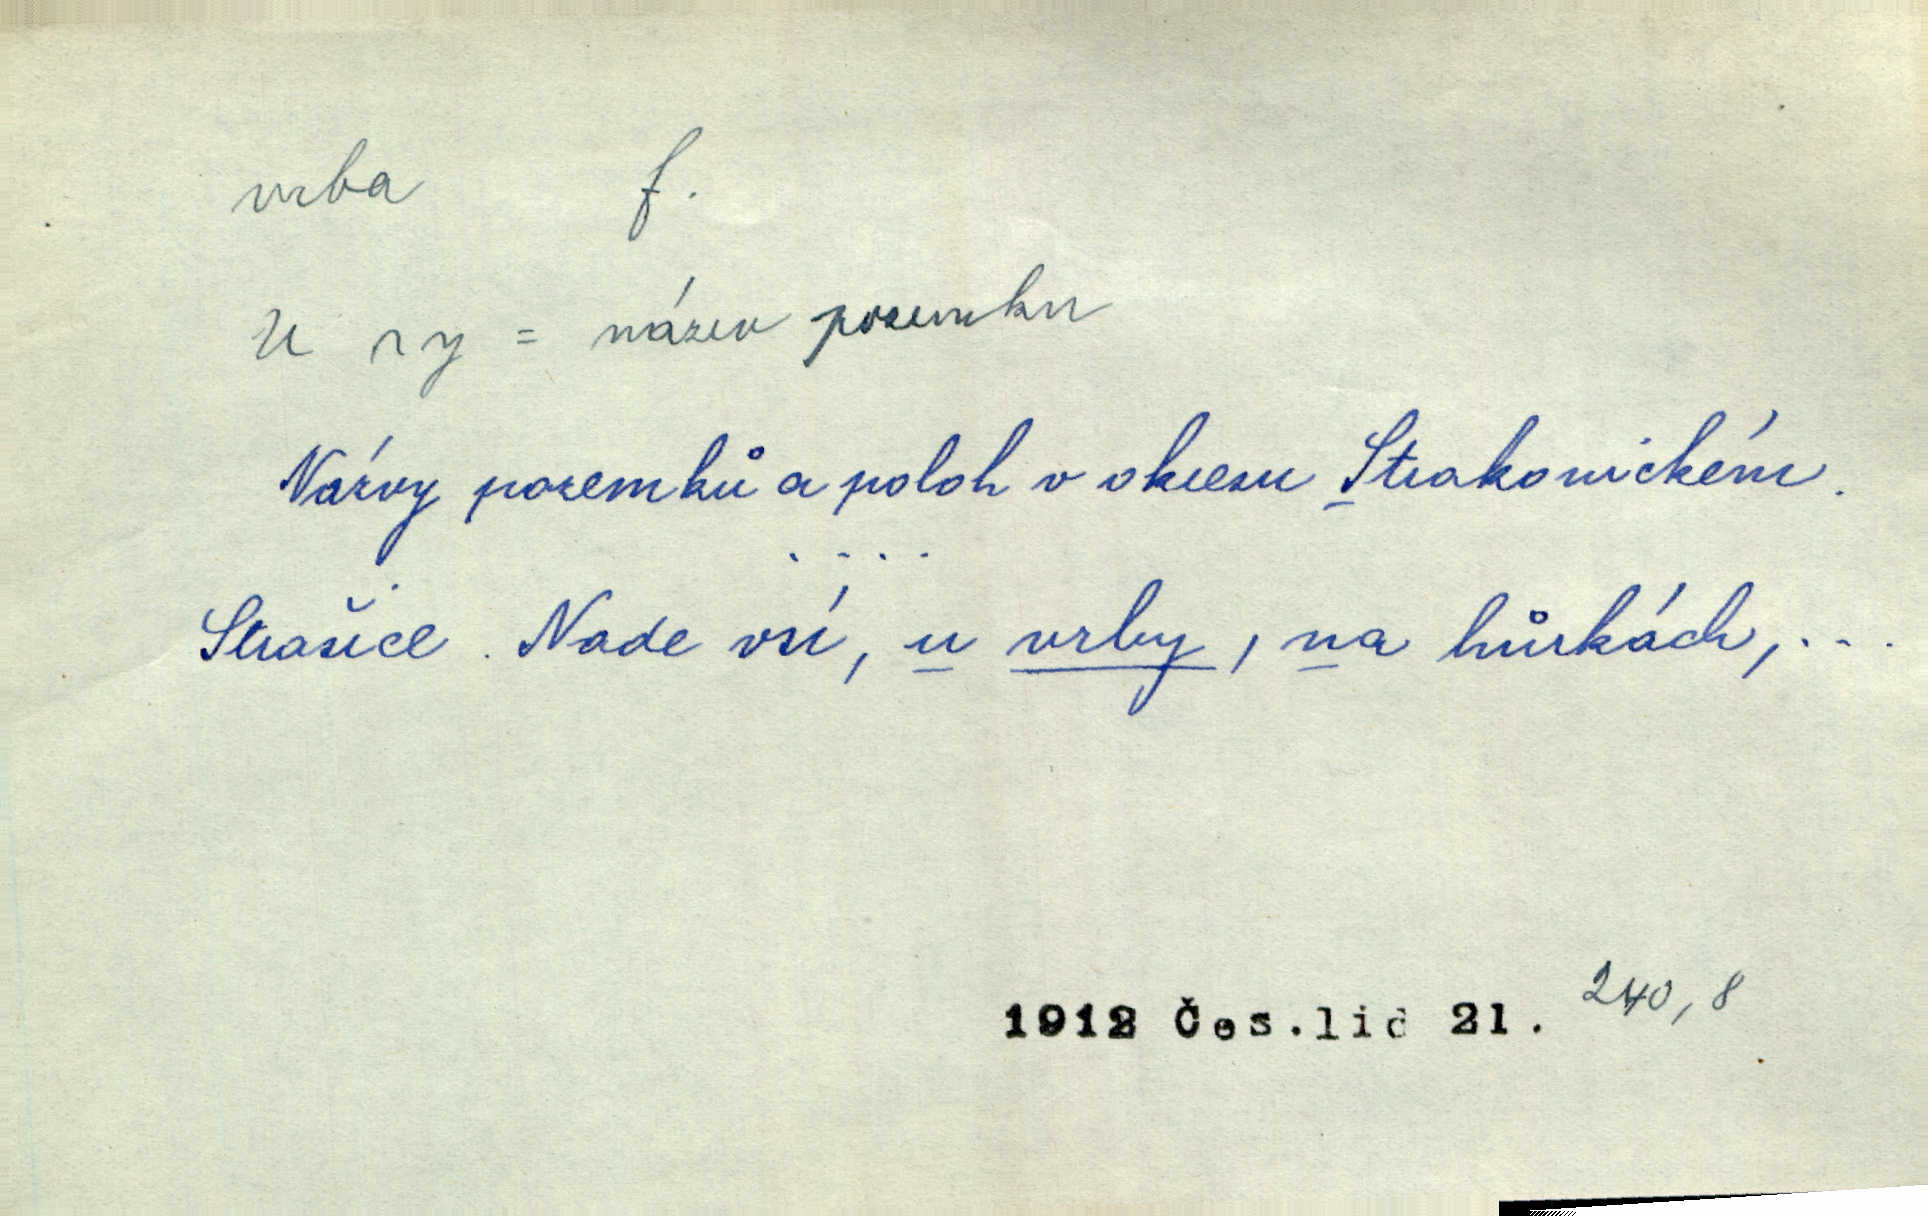 vrba f.
U vy = název pozemku
Názvy pozemků a poloh v okresu Strakonickém.
....
Strašice. Nade vsí, u vrby, na hůrkách,...
1912 Čes.lid 21. 240,8